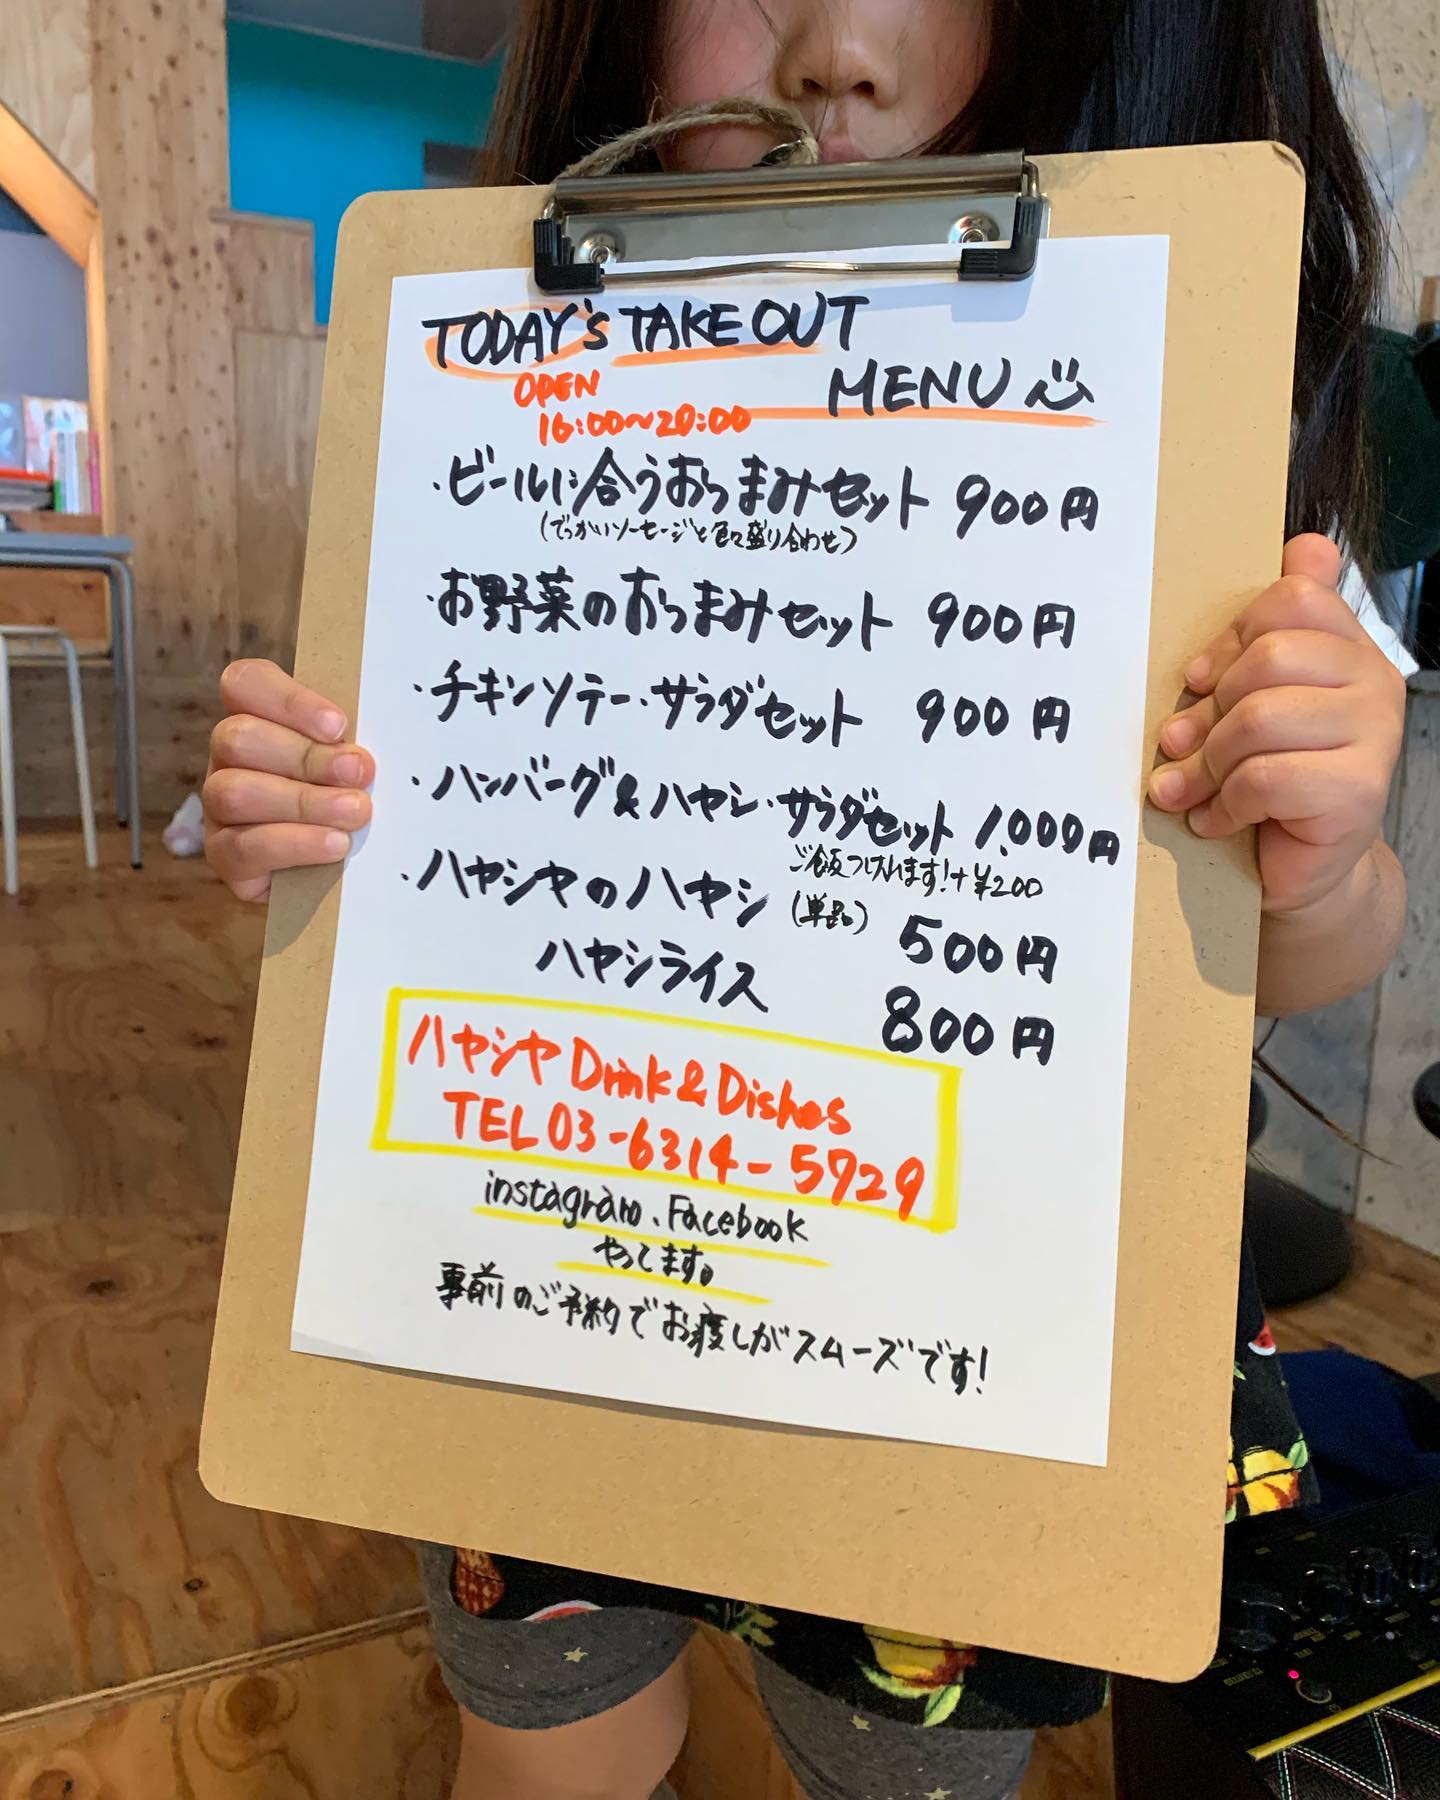 TODAY's TAKE OUT
MENU
OPEN
16:00~20:00
・ビールに合うおつまみセット 900円
(でっかいソーセージと色々盛り合わせ)
・お野菜のおつまみセット 900円
・チキンソテー・サラダセット 900円
・ハンバーグ&ハヤシ・サラダセット 1,000円
ご飯つけれます!+¥200
・ハヤシヤのハヤシ (単品) 500円
ハヤシライス 800円
ハヤシヤ Drink & Dishes
TEL 03-6314-5729
instagram、Facebook
やってます。
事前のご予約でお渡しがスムーズです!